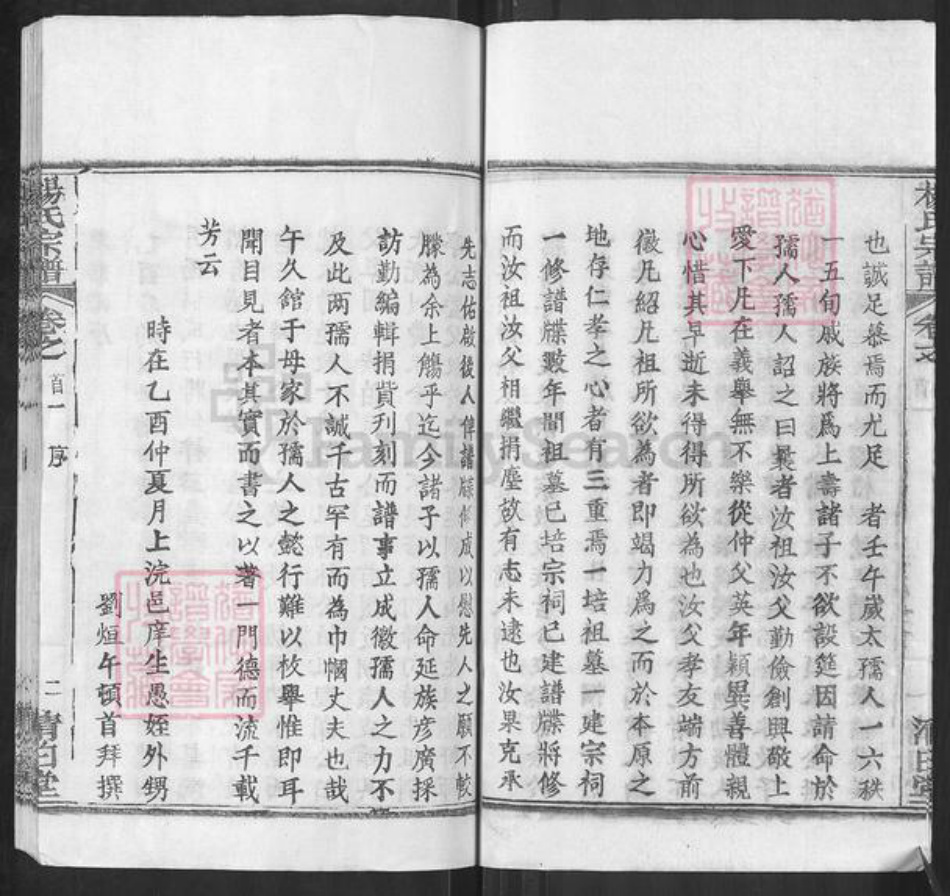 也誠足慕焉而尤足 者壬午歲太孺人一六秩
一五旬戚族將爲上壽諸子不欲設筵因請命於
孺人孺人詔之曰曩者汝祖汝父勤儉創興敬上
愛下凡在義舉無不樂從仲父英年穎異善體親
心惜其早逝未得得所欲為也汝父孝友端方前
徽凡紹凡祖所欲為者即竭力爲之而於本原之
地存仁孝之心者有三重焉一培祖墓一建宗祠
一修譜牒數年間祖墓已培宗祠已建譜牒將修
而汝祖汝父相繼捐塵欲有志未逮也汝果克承
先志佑啟後人俾譜牒修成以慰先人之願不較
勝為余上觴乎迄今諸子以孺人命延族彥廣採
訪勤編輯捐貲刋刻而譜事立成微孺人之力不
及此两孺人不誠千古罕有而為巾幗丈夫也哉
午久館于母家於孺人之懿行難以枚舉惟即耳
聞目見者本其實而書之以著一門德而流千載
芳云
時在乙酉仲夏月上浣邑庠生愚姪外甥
劉烜午頓首拜撰
楊氏宗譜 卷之 首一 序 二 清白堂